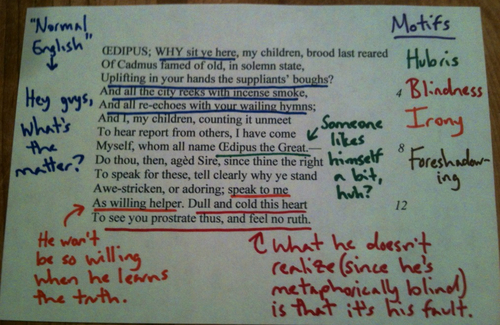 "Normal
English"
Hey guys,
What's
the
matter?
ŒDIPUS; WHY sit ye here, my children, brood last reared
Of Cadmus famed of old, in solemn state,
Uplifting in your hands the suppliants' boughs?
And all the city reeks with incense smoke,
And all re-echoes with your wailing hymns;
And I, my children, counting it unmeet
To hear report from others, I have come
Myself, whom all name Œdipus the Great.—
Do thou, then, agèd Sire, since thine the right
To speak for these, tell clearly why ye stand
Awe-stricken, or adoring; speak to me
As willing helper. Dull and cold this heart
To see you prostrate thus, and feel no ruth.
4
8
12
Someone
likes
himself
a bit,
huh?
Motifs
Hubris
Blindness
Irony
Foreshadow-
ing
He won't
be so willing
when he learns
the truth.
What he doesn't
realize (since he's
metaphorically blind)
is that it's his fault.